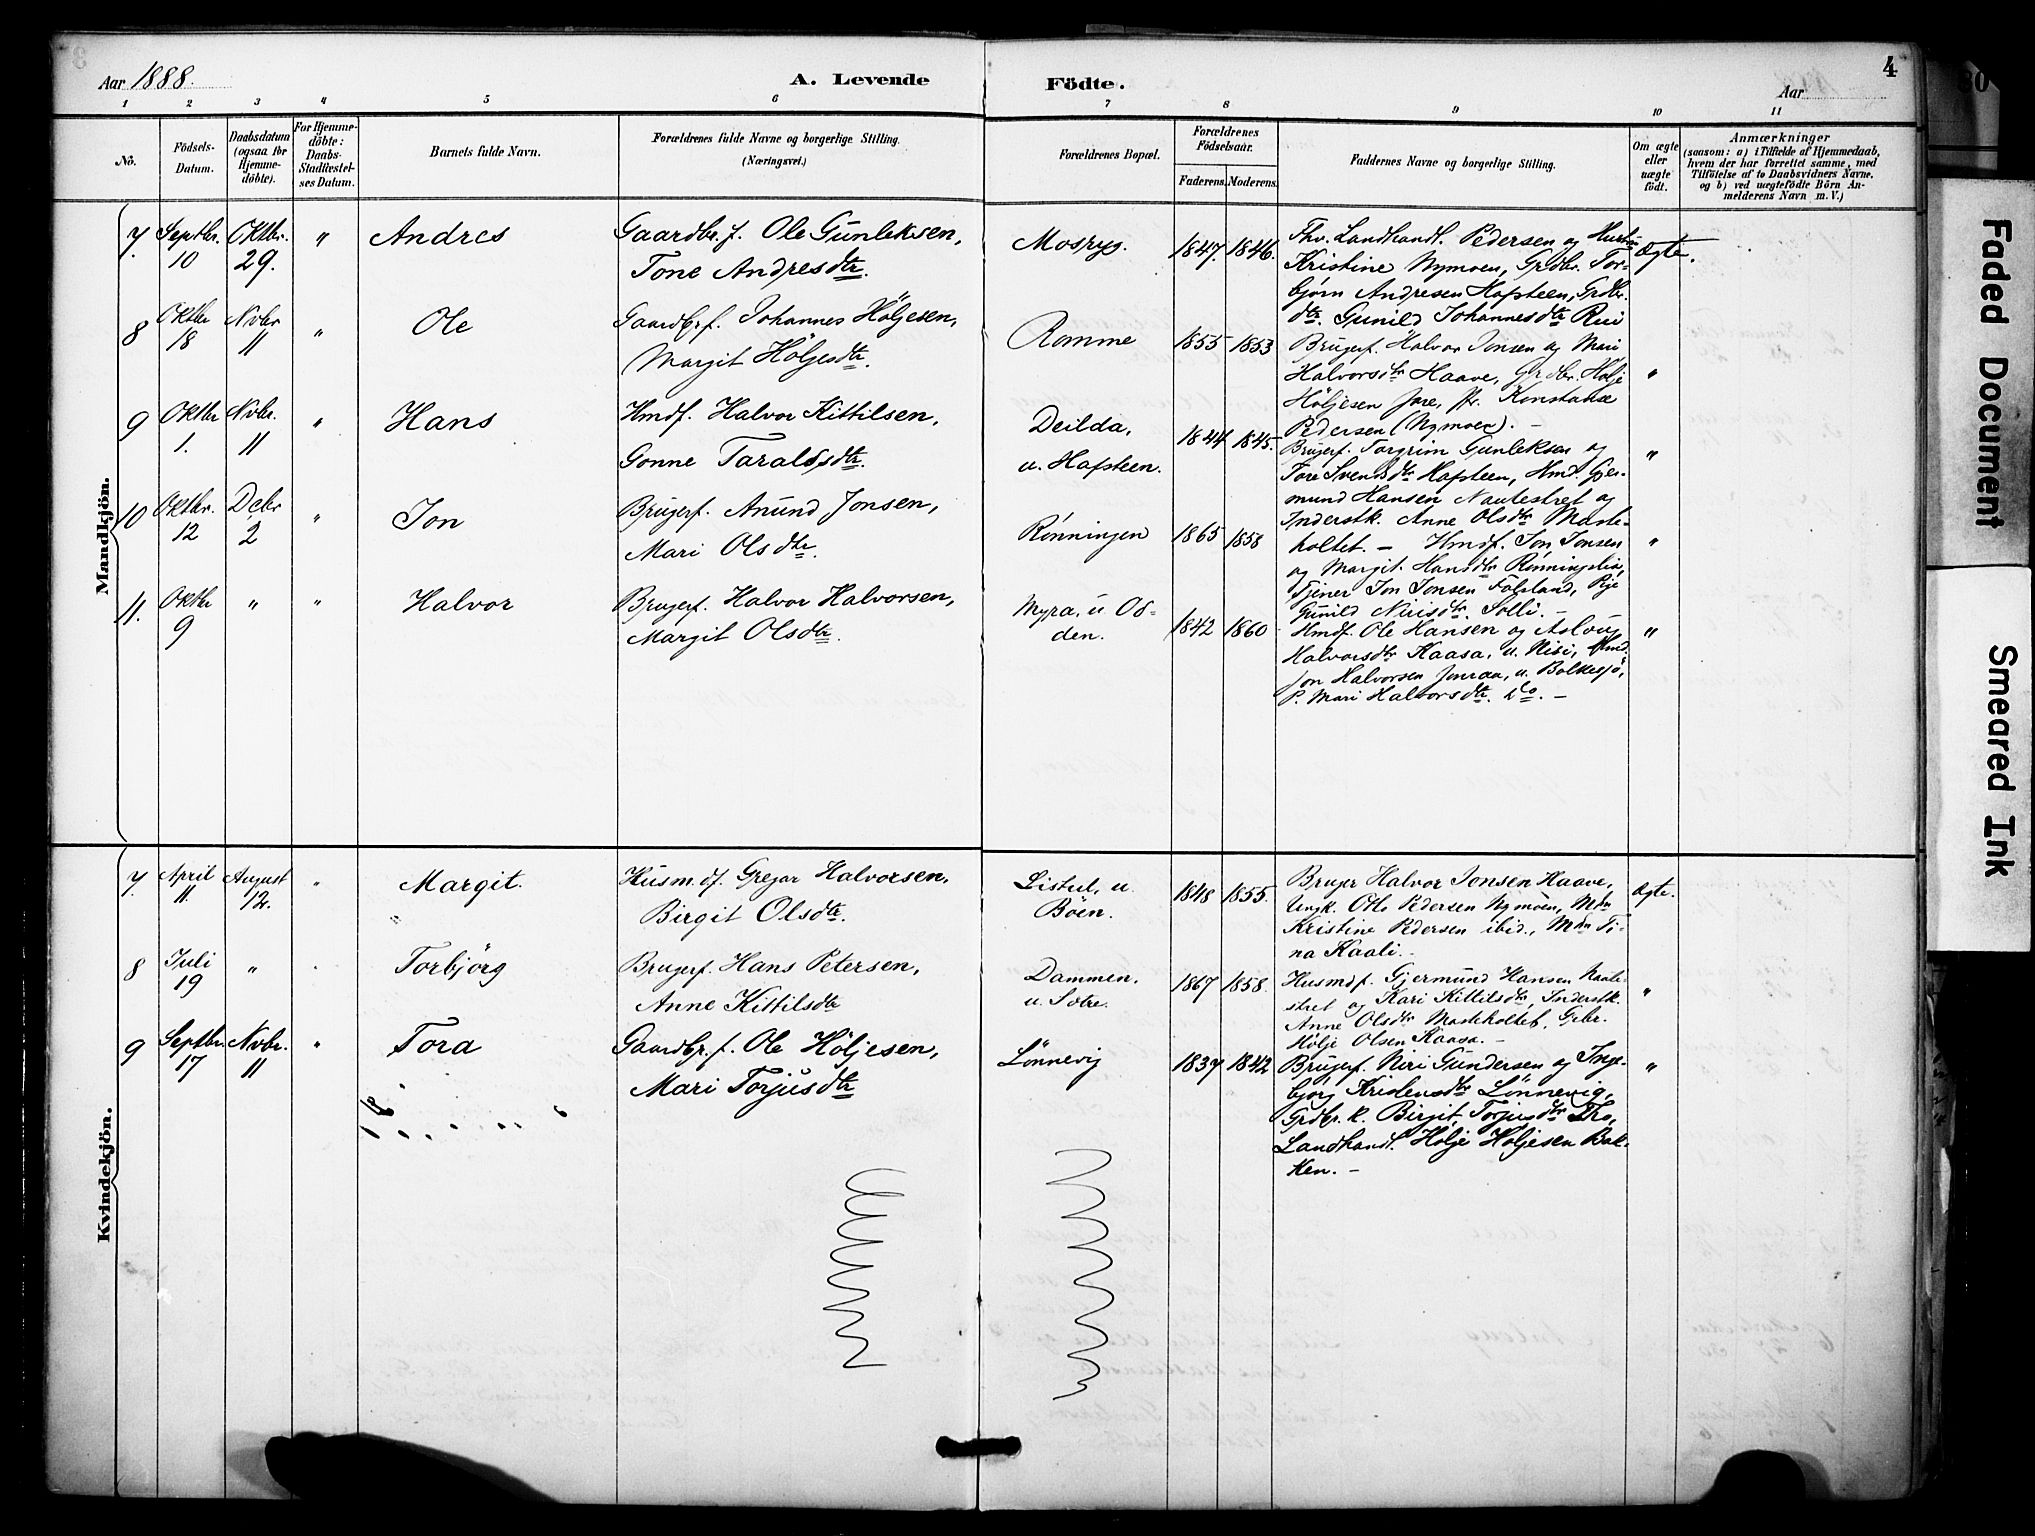 Aar 1888.
A. Levende Födte.
Aar
4
1 2 3 4 5 6 7 8 9 10 11
No.
Födsels-Datum.
Daabsdatum (ogsaa for Hjemme-döbte).
For Hjemme-döbte: Daabs-Stadfæstel-ses Datum.
Barnets fulde Navn.
Forældrenes fulde Navne og borgerlige Stilling.
(Næringsvei.)
Forældrenes Bopæl.
Forældrenes Födselsaar.
Faderens. Moderens.
Faddernes Navne og borgerlige Stilling.
Om ægte eller uægte födt.
Anmærkninger
(saasom: a) i Tilfælde af Hjemmedaab,
hvem der har forrettet samme, med
Tilföielse af to Daabsvidners Navne.
og b) ved uægtefödte Börn An-
melderens Navn m. V.)
Mandkjön.
7. Septbr. 10 Oktbr. 29. " Andres
Gaardbr.f. Ole Gunleksen,
Tone Andresdtr.
Mosryg. 1847. 1846.
Thv. Landhandl. Pedersen og Hustru
Kristine Nymoen, Grdbr. Tor-
bjørn Andresen Hafsteen, Grdbr.
dtr. Gunild Johannesdtr Rui
Ægte.
8 Oktbr 18 Nvbr 11 " Ole
Gaardbrf. Johannes Höljesen,
Margit Höljesdtr.
Romme 1855 1853
Brugerf. Halvor Jonsen og Mari
Halvorsdtr Haave, Grdbr. Hölje
Höljesen Jore, Konstanse
Pedersen (Nymoen). –
"
9 Oktbr 1. Nvbr. 11 " Hans
Hmdf. Halvor Kittilsen,
Gonne Taraldsdtr.
Deilda,
u. Hafsteen.
1844 1845.
Brugerf. Torgrim Gunleksen og
Tore Svendsdtr Hafsteen, Hmd. Gjer-
mund Hansen Nautestret og
Inderstk. Anne Olsdtr Maste-
holtet. –
"
10 Oktbr. 12 Debr 2 " Jon
Brugerf. Anund Jonsen,
Mari Olsdtr.
Rønningen 1865 1858
Hmdf. Jon Jonsen
og Margit Hansdtr Rønningslia,
Tjener Jon Jonsen Folsland, Pige
Gunild Nirisdtr. Solli. –
"
11. Oktbr 9 " " Halvor
Brugerf. Halvor Halvorsen,
Margit Olsdtr.
Myra, u Od-
den.
1842 1860
Hmdf. Ole Hansen og Aslaug
Halvorsdtr Kaasa, u. Nisi, Hmd.
Jon Halvorsen Jonraa, u. Bolkesjö,
P. Mari Halvorsdtr. do. –
"
Kvindekjön.
7. April 11. August 12. " Margit.
Husm.df. Gregar Halvorsen,
Birgit Olsdtr.
Listul, u.
Böen.
1848 1855.
Bruger Halvor Jonsen Haave,
Ungk. Otto Pedersen Nymoen, Mdm
Kristine Pedersen ibid., Mdm Ti-
na Kaali. –
Ægte.
8 Juli 19 " Torbjörg
Brugerf. Hans Petersen,
Anne Kittilsdtr
Dammen.
u. Sotre.
1867 1858.
Husmdf. Gjermund Hansen Naute-
stret og Kari Kittilsdtr, Inderstk.
Anne Olsdtr Masteholtet, Gbr.
Hölje Olsen Kaasa. –
"
9 Septbr. 17 Nvbr. 11 " Tora
Gaardbr.f. Ole Höljesen,
Mari Torjusdtr
Lönnevig 1837 1842
Brugerf. Niri Gundersen og Inge-
björg Kristensdtr Lönnevig,
Grdbr.k. Birgit Torjusdtr Tho,
Landhandl. Hölje Höljesen Bak-
ken. –
"
Faded Document
Smeared Ink